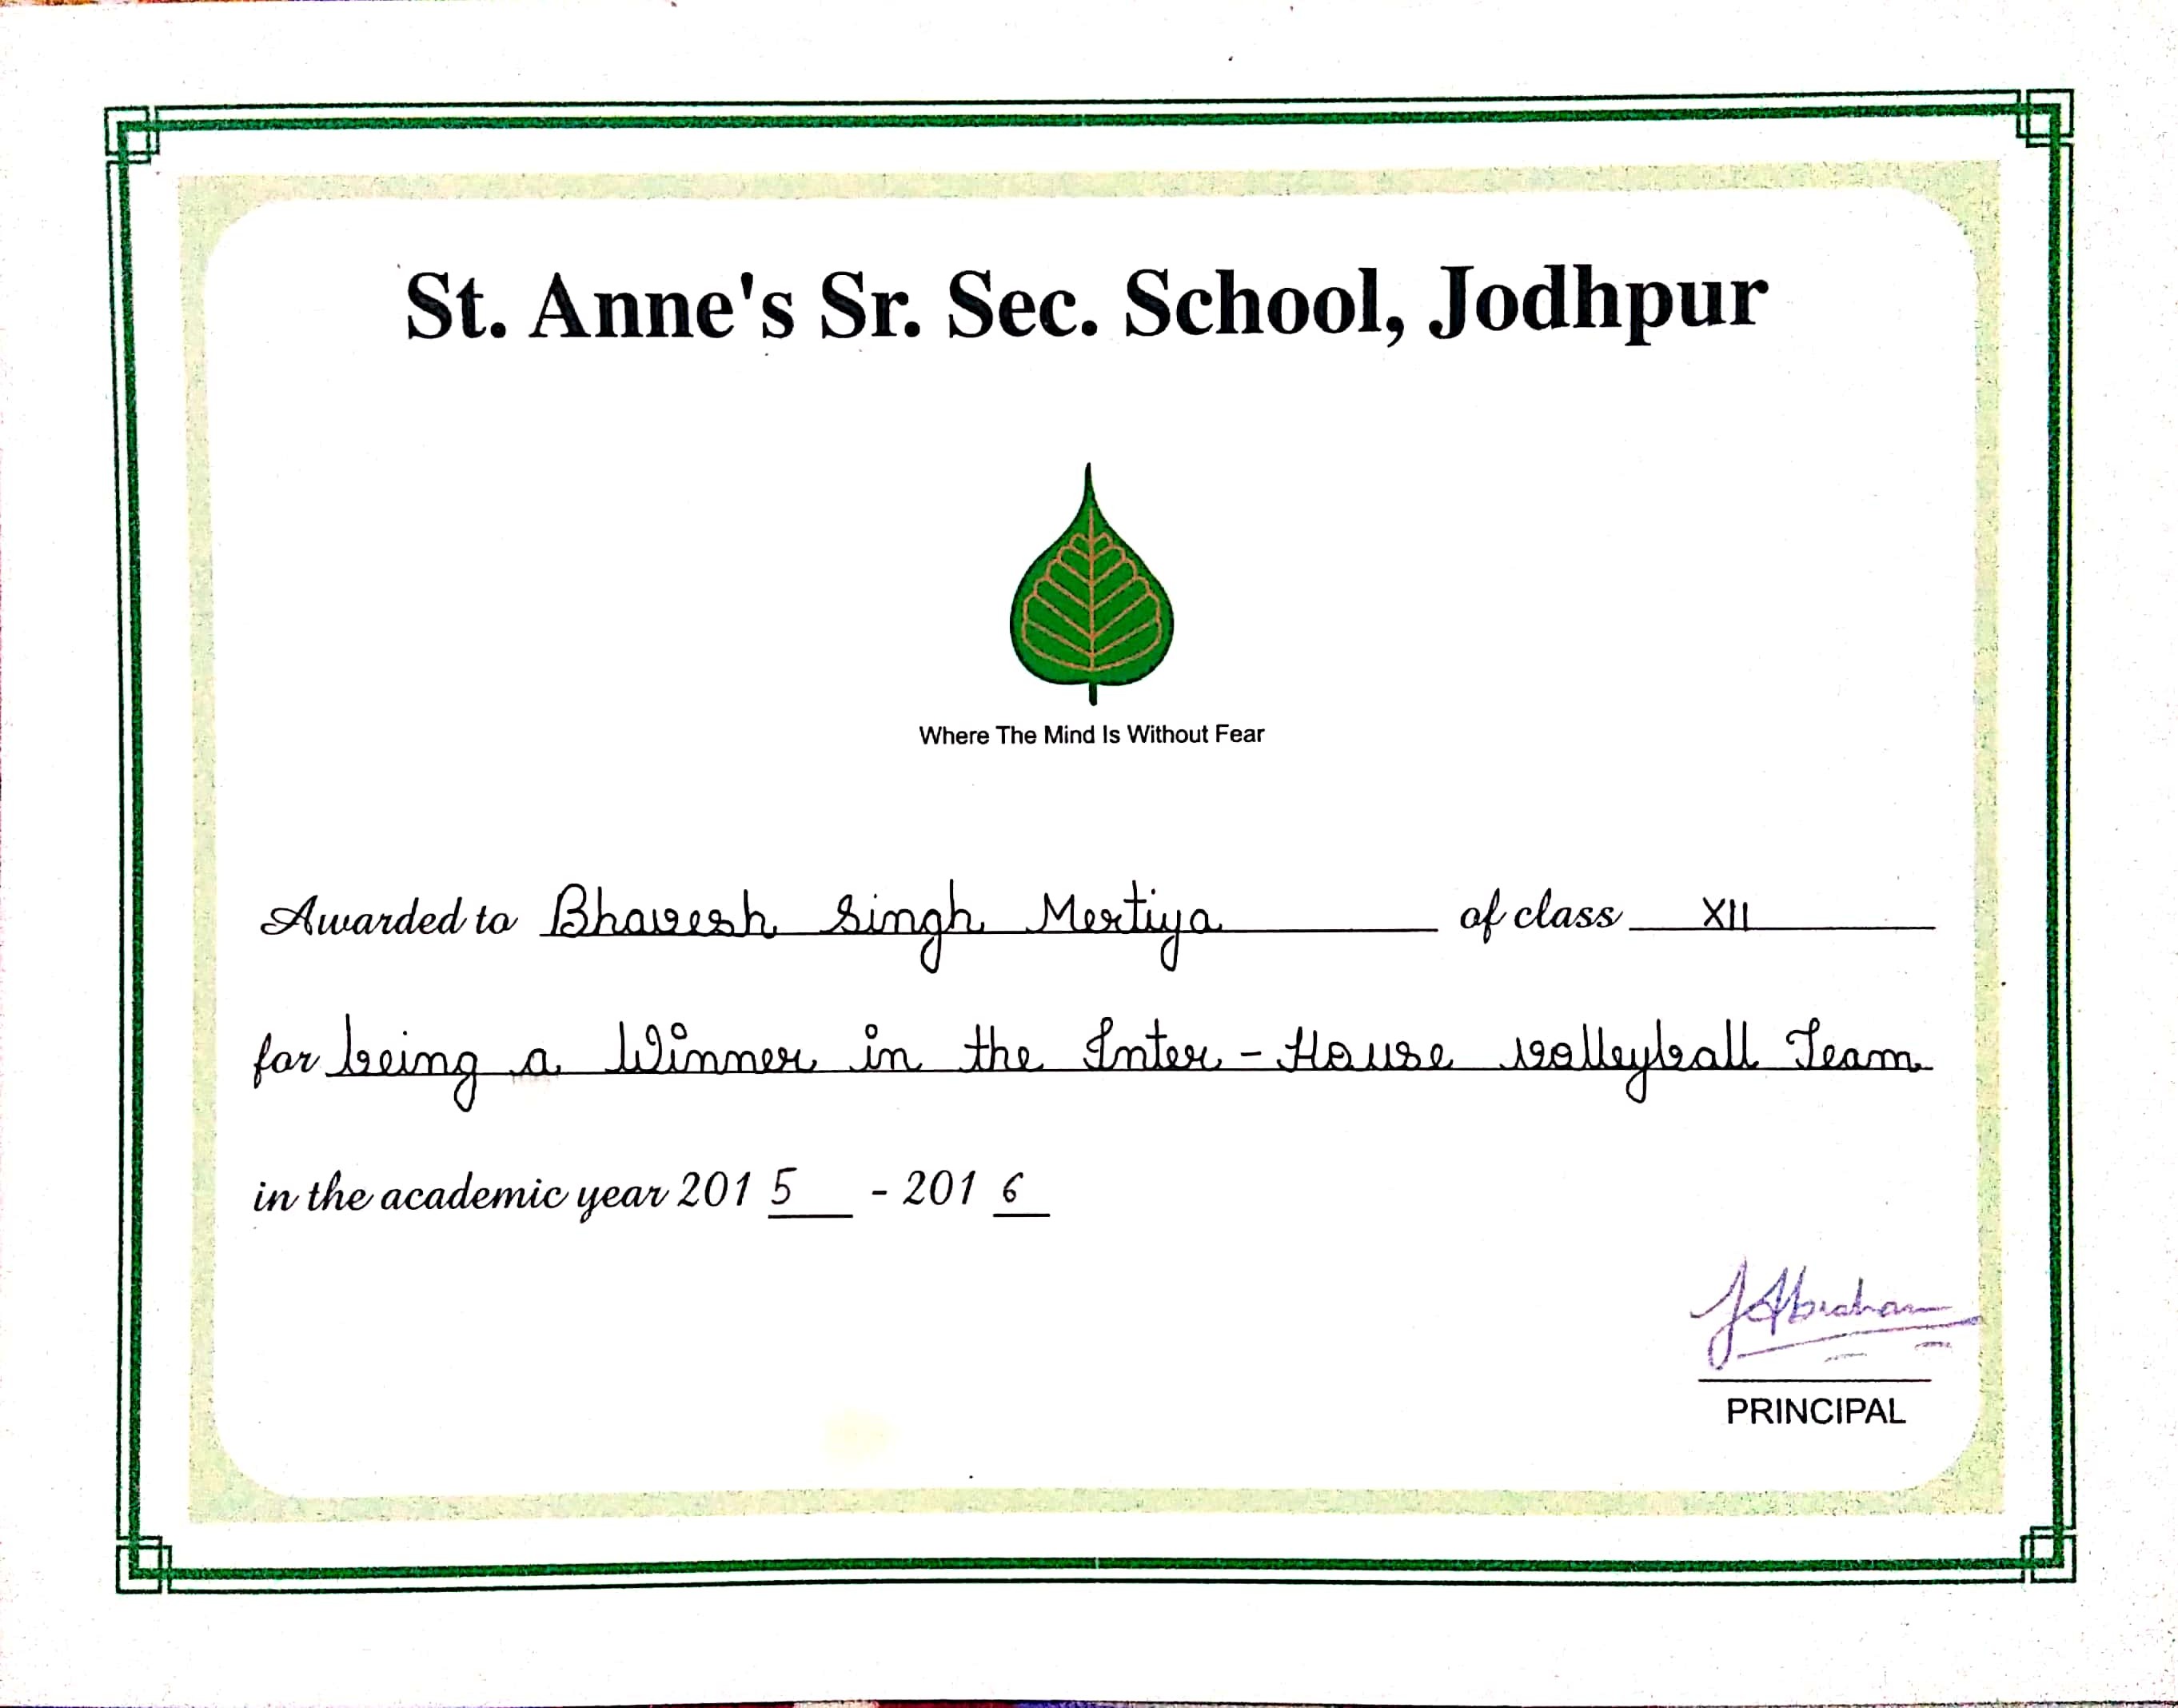 St. Anne's Sr. Sec. School, Jodhpur
Where The Mind Is Without Fear
Awarded to Bhavesh Singh Mertiya of class XII
for being a Winner in the Inter-House volleyball Team
in the academic year 2015 - 2016
JAbraham
PRINCIPAL